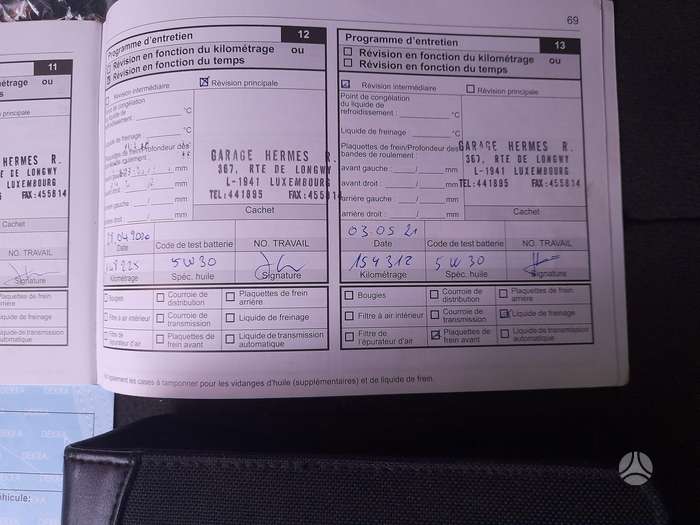 69
11
métrage ou
s
principale
HERMES R.
DE LONGWY
LUXEMBOURG
FAX:455814
Cachet
NO. TRAVAIL
Signature
Plaquettes de frein
arrière
Liquide de freinage
Liquide de transmission
automatique
12
Programme d'entretien
Révision en fonction du kilométrage ou
Révision en fonction du temps
Révision intermédiaire
Révision principale
Point de congélation
du liquide de
refroidissement :
°C
Liquide de freinage :
°C
Plaquettes de frein/Profondeur des
mm
avant droit :
mm
mm
arrière droit :
mm
GARAGE HERMES R.
367, RTE DE LONGWY
L-1941 LUXEMBOURG
TEL:441895 FAX:455814
Cachet
28.04.2020
Date
Code de test batterie
NO. TRAVAIL
5W30
Kilométrage
Spéc. huile
Signature
Bougies
Courroie de
distribution
Plaquettes de frein
arrière
Filtre à air intérieur
Courroie de
transmission
Liquide de freinage
Filtre de
l'épurateur d'air
Plaquettes de
frein avant
Liquide de transmission
automatique
13
Programme d'entretien
Révision en fonction du kilométrage ou
Révision en fonction du temps
Révision intermédiaire
Révision principale
Point de congélation
du liquide de
refroidissement :
°C
Liquide de freinage :
°C
Plaquettes de frein/Profondeur des
bandes de roulement :
avant gauche : / mm
avant droit : / mm
arrière gauche : / mm
arrière droit : / mm
GARAGE HERMES R.
367, RTE DE LONGWY
L-1941 LUXEMBOURG
TEL:441895 FAX:455814
Cachet
03.05 21
Date
Code de test batterie
NO. TRAVAIL
154312
5W30
Kilométrage
Spéc. huile
Signature
Bougies
Courroie de
distribution
Plaquettes de frein
arrière
Filtre à air intérieur
Courroie de
transmission
Liquide de freinage
Filtre de
l'épurateur d'air
Plaquettes de
frein avant
Liquide de transmission
automatique
les cases à tamponner pour les vidanges d'huile (supplémentaires) et de liquide de frein.
DEKRA
éhicule: